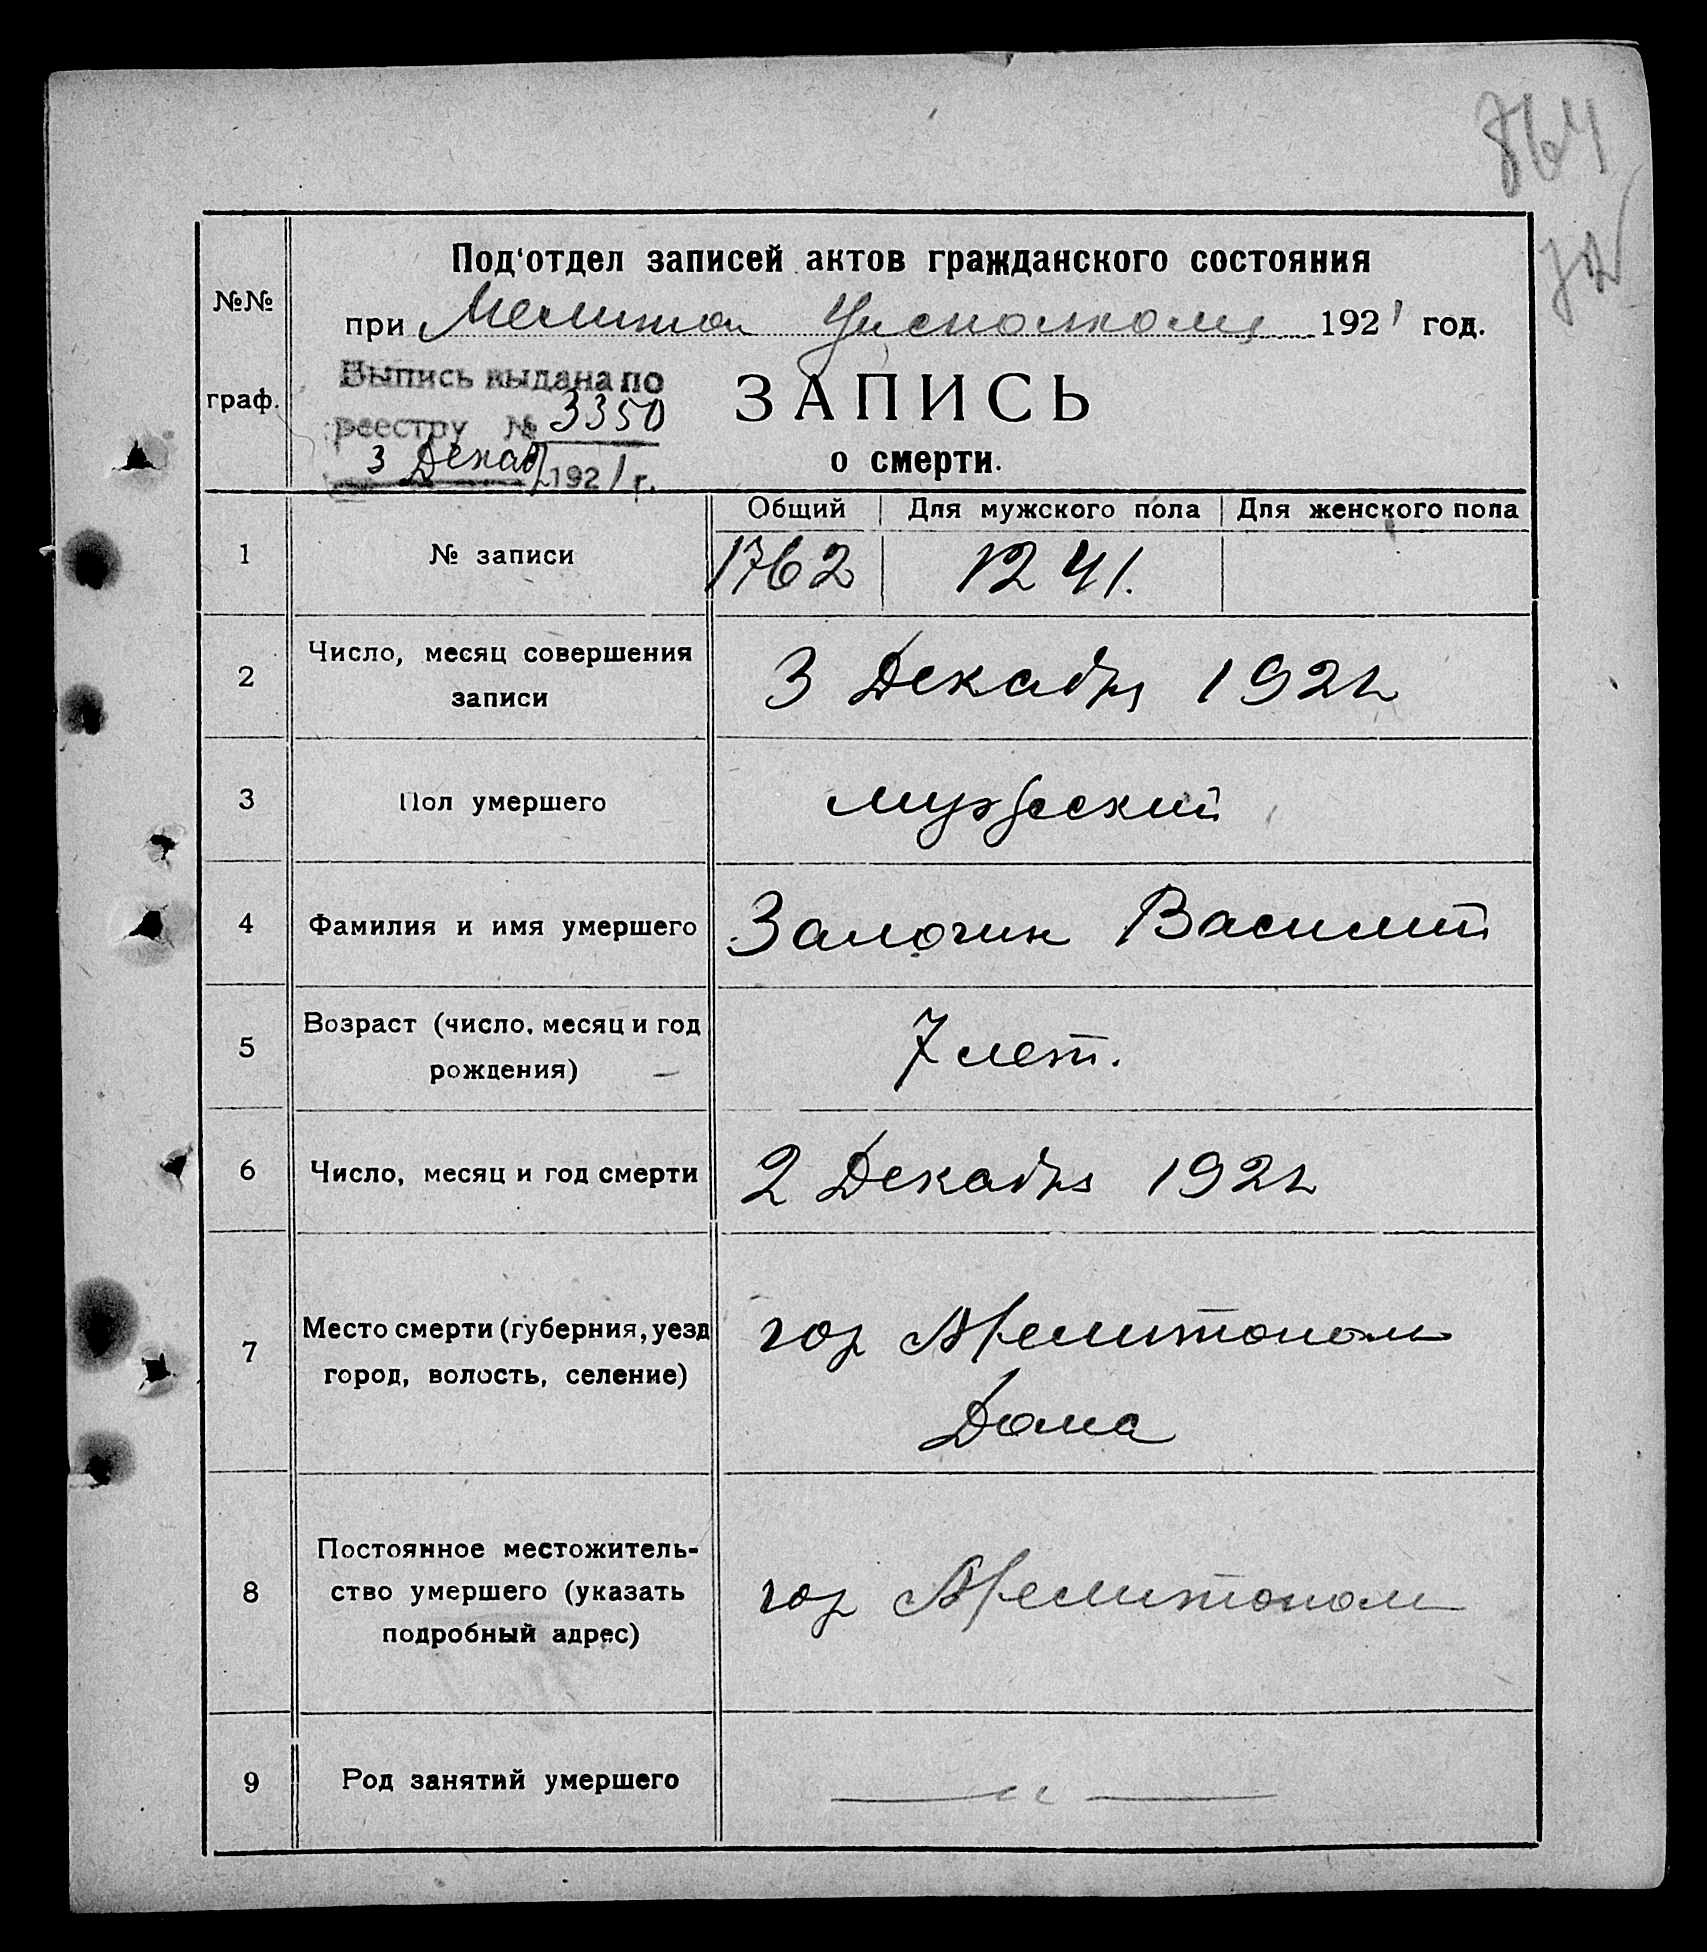 864
№№
граф.
Под'отдел записей актов гражданского состояния
при Мелитоп Уисполкоме 1921 год.
Выпись выдана по
реестру № 3350
3 Декаб 1921 г.
ЗАПИСЬ
о смерти.
Общий Для мужского пола Для женского пола
1 № записи 1762 1241.
2 Число, месяц совершения
записи
3 Декабря 1921
3 Пол умершего мужеский
4 Фамилия и имя умершего Залогин Василий
5 Возраст (число, месяц и год
рождения)
7 лет.
6 Число, месяц и год смерти 2 Декабря 1921
7 Место смерти (губерния, уезд
город, волость, селение)
гор Мелитополь
Дома
8 Постоянное местожитель-
ство умершего (указать
подробный адрес)
гор Мелитополь
9 Род занятий умершего — " —